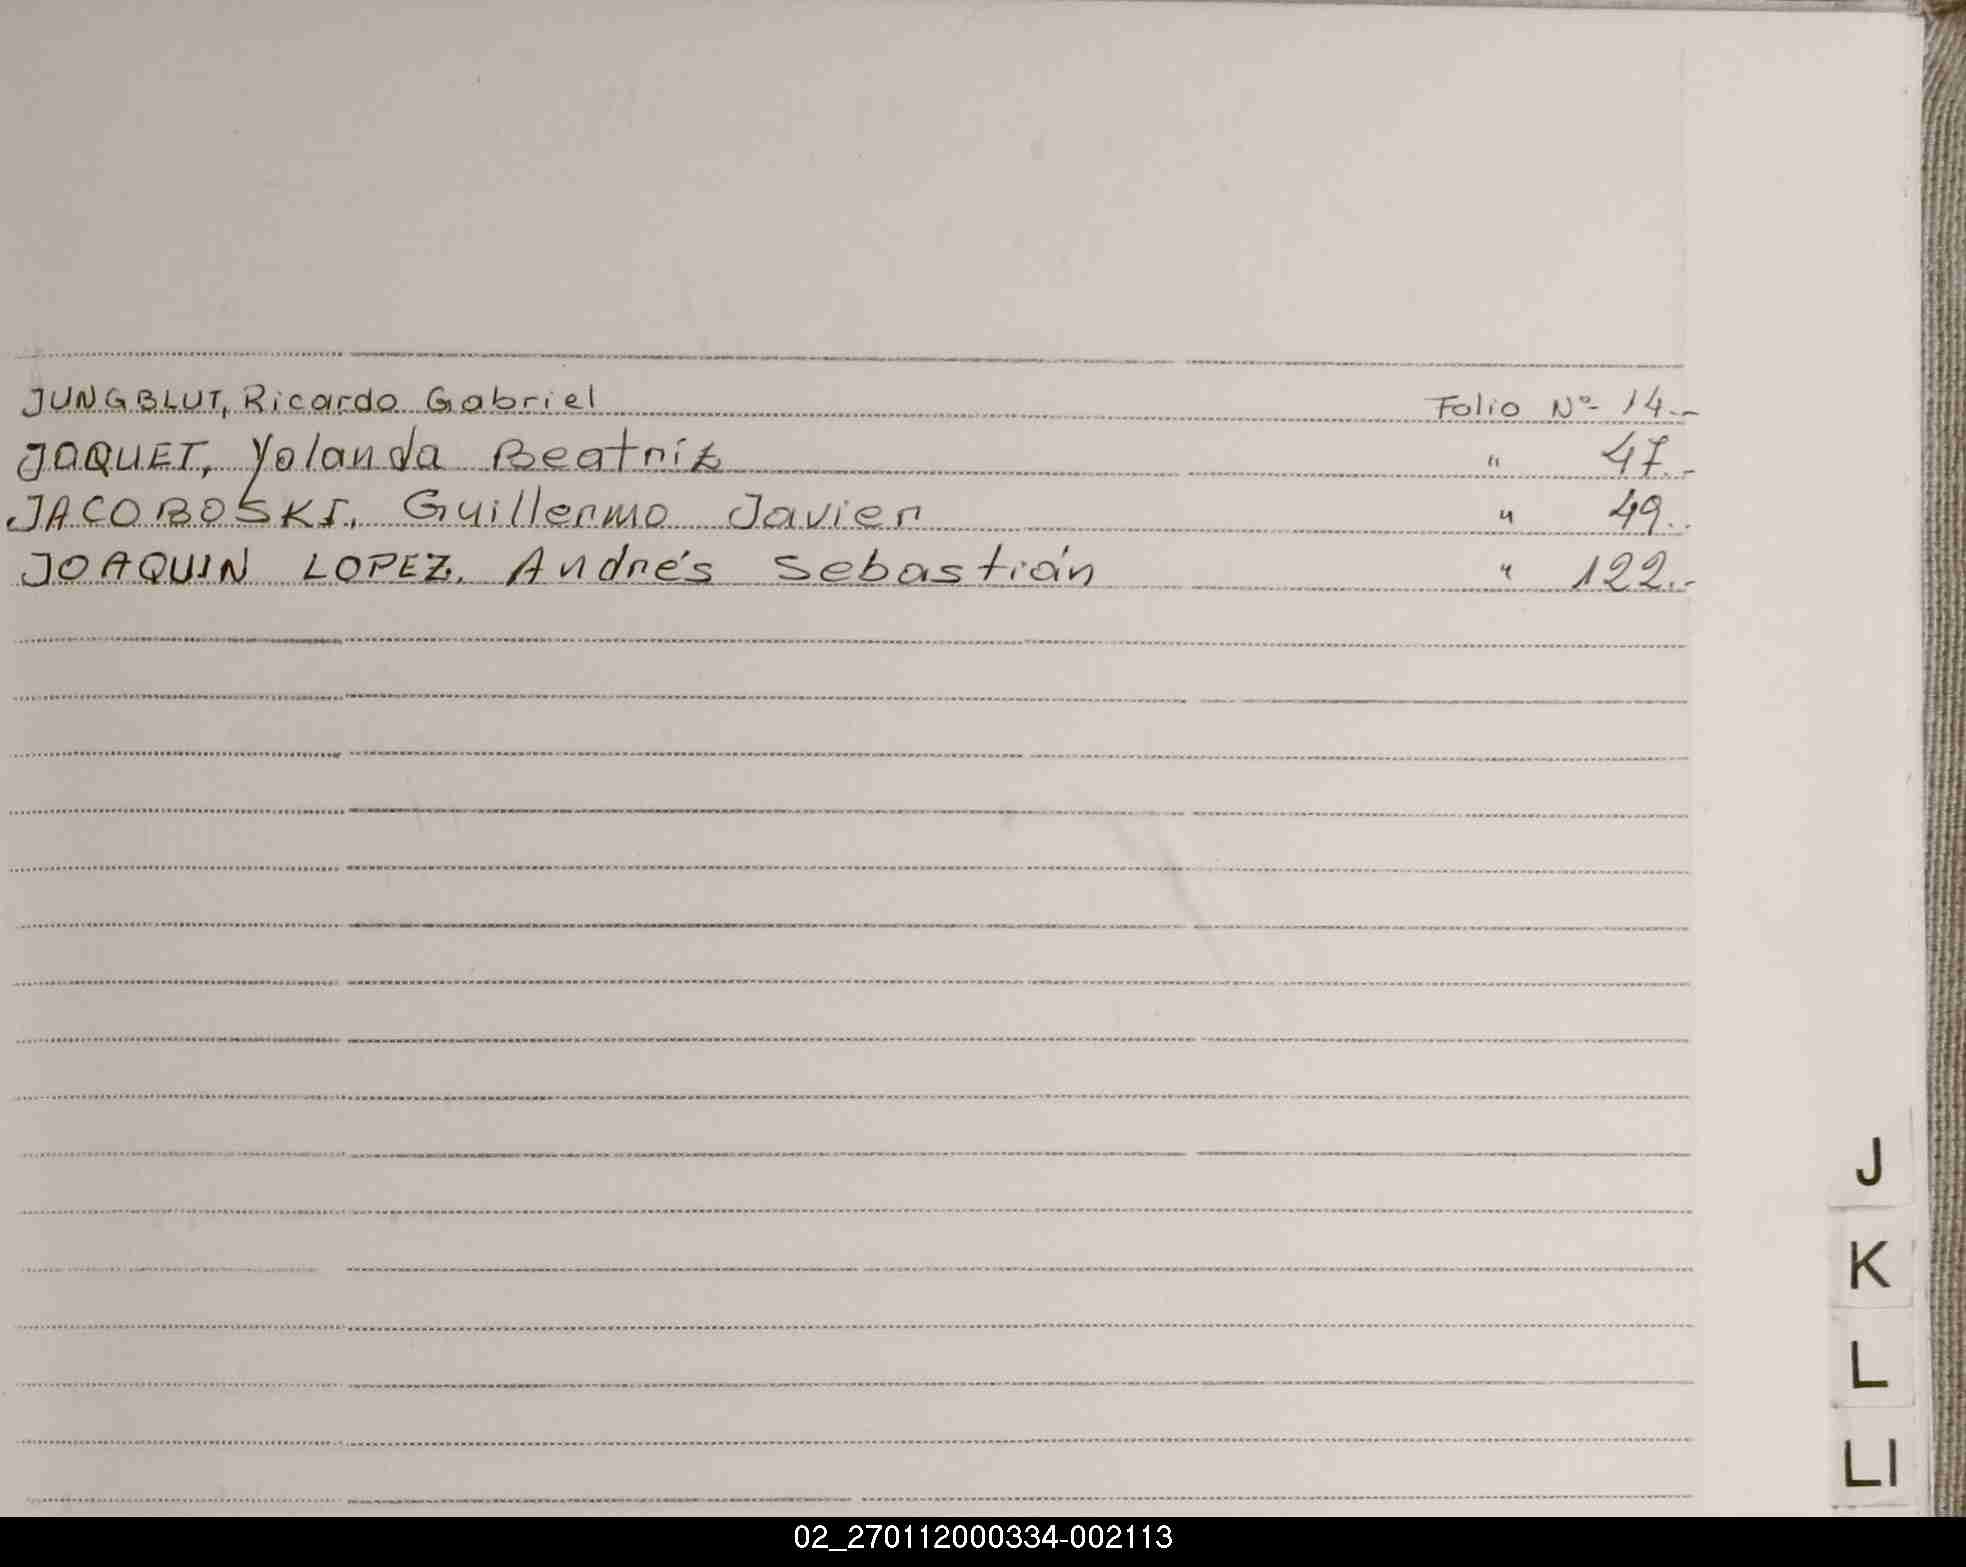 JUNGBLUT, Ricardo Gabriel Folio Nº 14.-
JAQUET, Yolanda Beatriz " 47.-
JACOBOSKI, Guillermo Javier " 49.-
JOAQUIN LOPEZ, Andrés Sebastián " 122.-
J
K
L
Ll
02_270112000334-002113